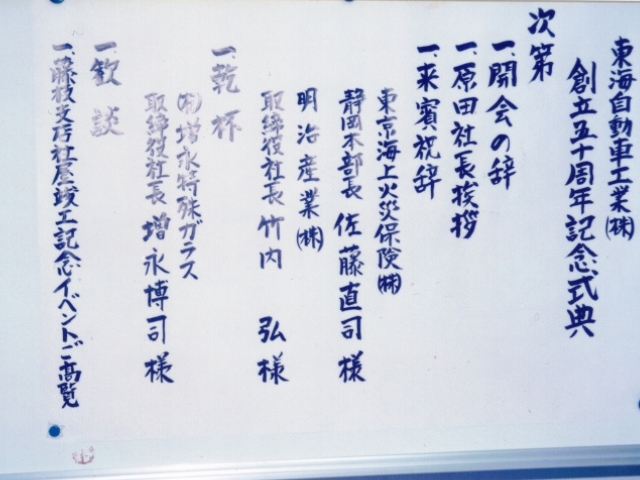 東海自動車工業㈱
創立五十周年記念式典
次第
一、開会の辞
一、原田社長挨拶
一、来賓祝辞
東京海上火災保険㈱
静岡本部長 佐藤直司様
明治産業㈱
取締役社長 竹内 弘様
一、乾杯
㈲増永特殊ガラス
取締役社長 増永博司様
一、歓談
一、藤枝支店社屋竣工記念イベントご高覧